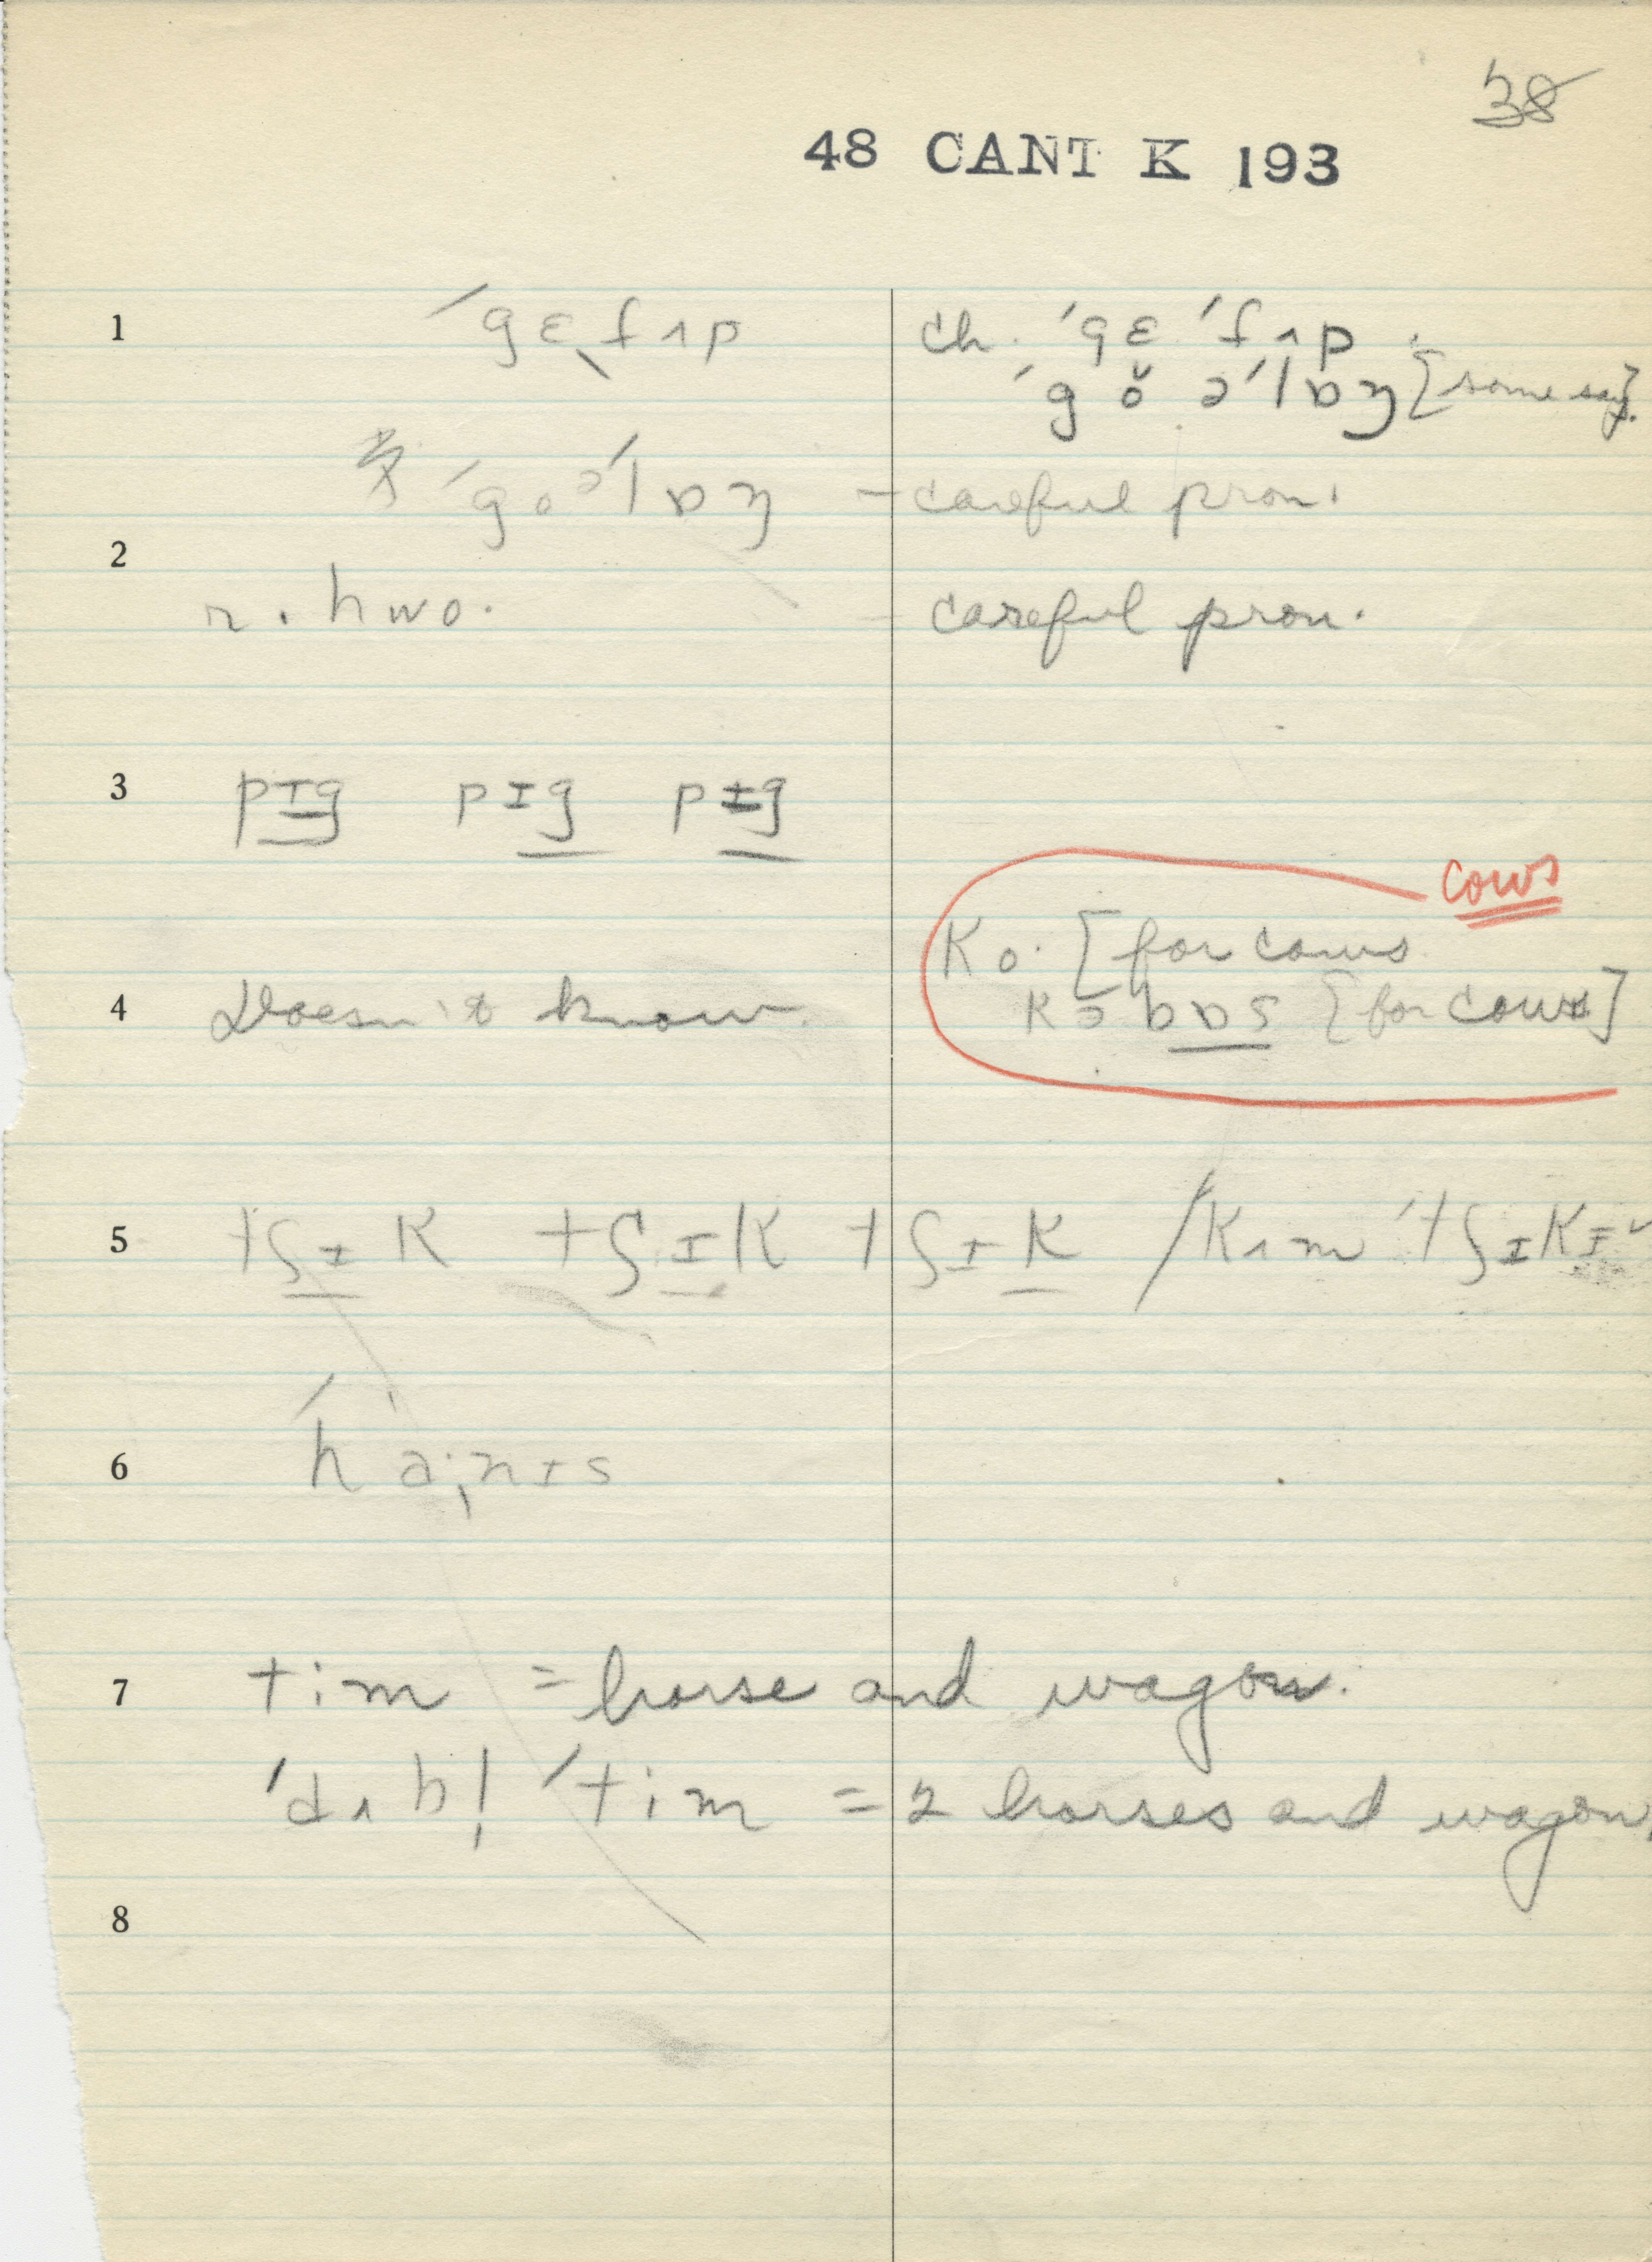 38
48 CANT K 193
1 ˈgɛ fʌp ch. ˈgɛ ˈfʌp.
ˈgŏ əˈlɒŋ [some say].
ˈgo əˈlɒŋ – careful pron.
2
n. hwo. – careful pron.
3 pɪg pɪg pɪg
cows
ko· [for cows
4 Doesn't know. kəbɒs [for cows]
5 tʃɪk tʃɪk tʃɪk / kʌm ˈtʃɪkɪ
6 ˈha·nɪs
7 tim = horse and wagon.
ˈdʌbl ˈtim = 2 horses and wagon.
8